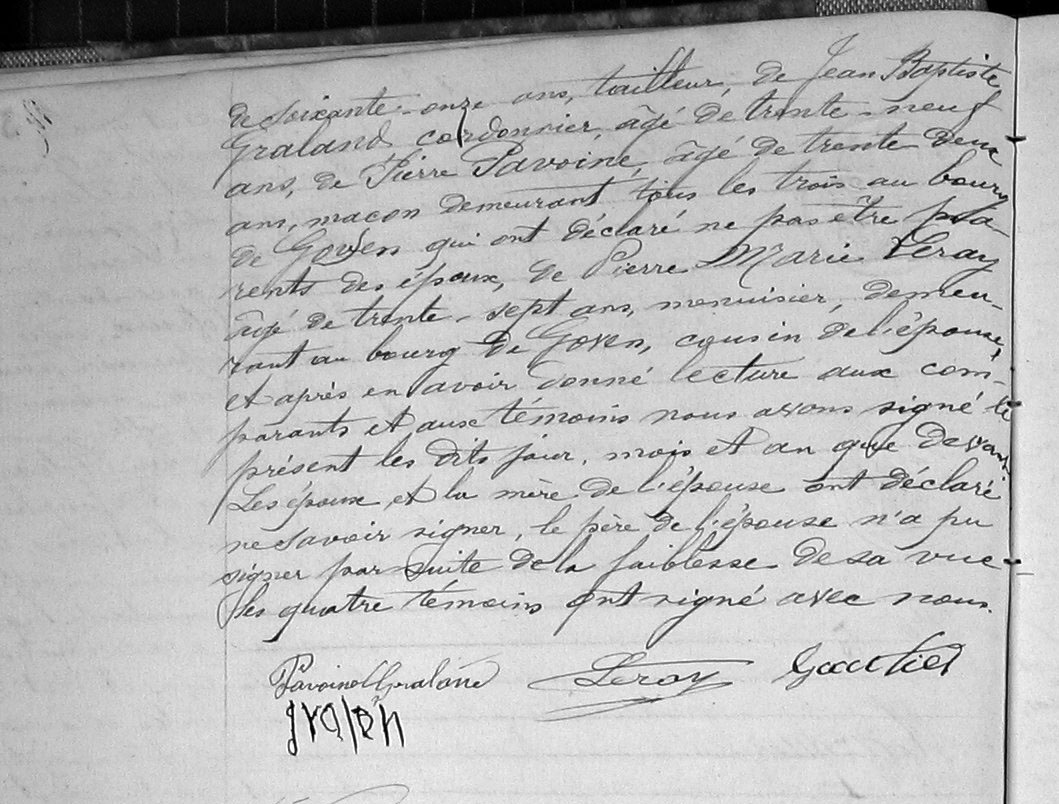 de soixante-onze ans, tailleur, de Jean Baptiste
Graland cordonnier, âgé de trente-neuf
ans, de Pierre Pavoine, âgé de trente deux
ans, maçon demeurant tous les trois au bourg
de Goven qui ont déclaré ne pas être pa-
rents des époux, de Pierre Marie Leray
âgé de trente-sept ans, menuisier, demeu-
rant au bourg de Goven, cousin de l'épouse,
et après en avoir donné lecture aux com-
parants et aux témoins nous avons signé le
présent les dits jour, mois et an que devant
Les époux et la mère de l'épouse ont déclaré
ne savoir signer, le père de l'épouse n'a pu
signer par suite de la faiblesse de sa vue
les quatre témoins ont signé avec nous.
Pavoine Graland Leray Gautier